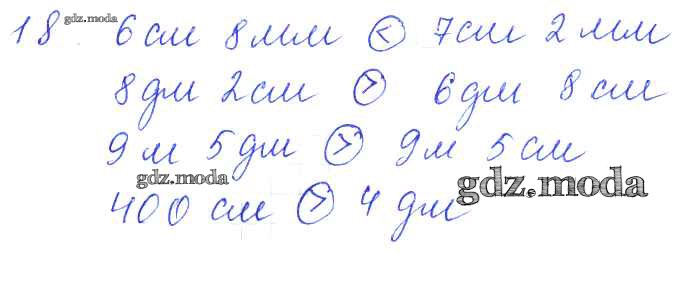 18 gdz.moda 6 см 8 мм < 7 см 2 мм
8 дм 2 см > 6 дм 8 см
9 м 5 дм > 9 м 5 см
gdz.moda
400 см > 4 дм gdz.moda